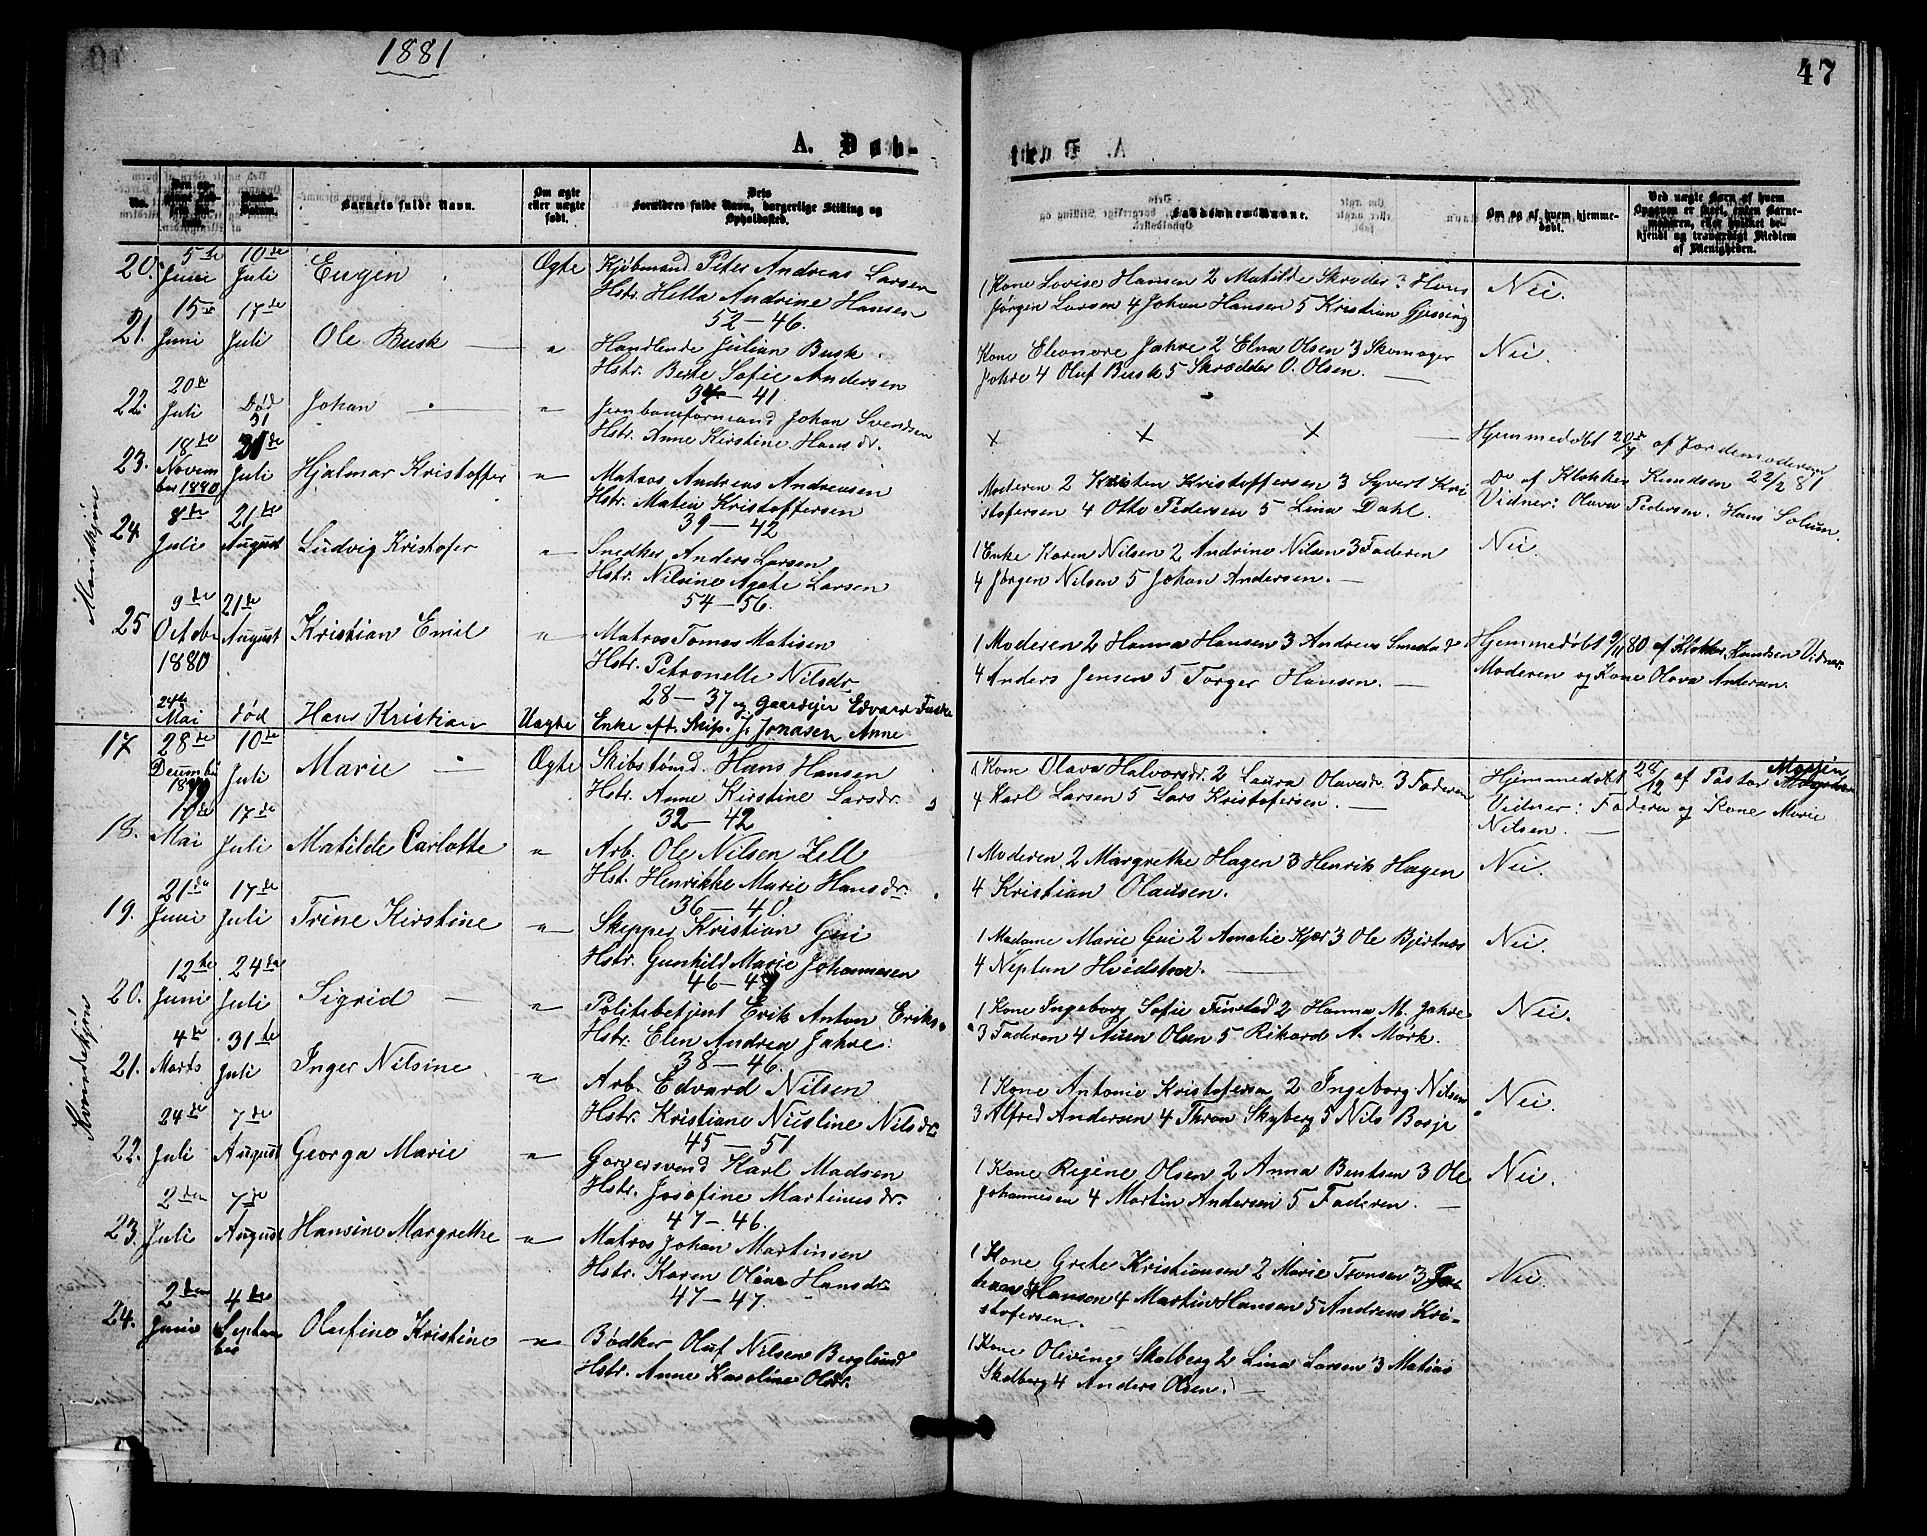 1881
47
A. Døb-
No.
Barnets fulde Navn.
Om ægte
eller uægte
født.
Dets
Forældres fulde Navn, borgerlige Stilling og
Opholdssted.
Faddernes Navne.
Om og af hvem hjemme-
døbt.
Ved uægte Børn af hvem
Opgaven er skeet, enten Barne-
moderen, eller hvilket be-
kjendt og troværdigt Medlem
af Menigheden.
Mandkjøn
20. 5te Juni 10de Juli Eugin Ægte Kjøbmand Peter Andreas Larsen
Hstr. Hella Andrine Hansen
52 – 46.
1 Kone Lovise Hansen 2 Matilde Skrøder 3 Hans
Jørgen Larsen 4 Johan Hansen 5 Kristian Gjessing
Nei.
21. 15de Juni 17de Juli Ole Busk — " Handlende Julian Busk.
Hstr. Berte Sofie Andersen
41
Kone Eleonore Jahre 2 Elna Olsen 3 Skomager
Jahre 4 Oluf Busk 5 Skrædder O. Olsen. —
Nei.
22. 20de Juli Død 31 Johan — " Jernbaneformand Johan Svendsen
Hstr. Anne Kirstine Hansdr.
x x x —
Hjemmedøbt 20de/7 af Jordemoderen
23. 18de November 1880 31te Juli Hjalmar Kristoffer " Matros Andreas Andreasen
Hstr. Matea Kristoffersen
39 – 42
Moderen 2 Kristen Kristoffersen 3 Syvert Kri
stofersen 4 Otto Pedersen 5 Lina Dahl.
Do af Klokker Knudsen 22/2 81
Vidner: Olava Pedersen. Hans Solum.
24. 8de Juli 21de August Ludvig Kristofer " Snedker Anders Larsen
Hstr. Nilsine Agate Larsen
54 – 56.
1 Enke Karen Nilsen 2 Andrine Nilsen 3 Faderen
4 Jørgen Nilsen 5 Johan Andersen. —
Nei.
25 9de October 1880 21de August Kristian Emil " Matros Tomas Matisen
Hstr. Petronelle Nilsdr.
28 – 37
1 Moderen 2 Hanna Hansen 3 Andreas Smestad
4 Anders Jensen 5 Torger Hansen. —
Hjemmedøbt 9/11 80 af Klokker Knudsen Vidner
Moderen og Kone Olava Andersen.
24de Mai død Hans Kristian Uægte og Gaardejer Edvard Fuske
Enke eft. Skip. J. Jonasen Anne
Kvindekjøn
17 28de December 1879 10de Juli Marie — Ægte Skibstømd. Hans Hansen
Hstr. Anne Kirstine Larsdr.
32 – 42
1 Kone Olava Halvorsdr. 2 Laura Olavesdr 3 Faderen
4 Karl Larsen 5 Lars Kristofersen. —
Hjemmedøbt 28/12 af Pastor
Vidner: Faderen og Kone Marie
Nilsen. —
18. 10de Mai 17de Juli Matilde Carlotte " Arb. Ole Nilsen Zell
Hst. Henrikke Marie Hansdr.
36 – 40.
1 Moderen 2 Margrethe Hagen 3 Henrik Hagen
4 Kristian Olausen.
Nei.
19. 21de Juni 17de Juli Trine Kirstine " Skipper Kristian Gui
Hstr. Gunhild Marie Johannesen
1 Madame Marie Gui 2 Amalie Kjær 3 Ole Bjertnæs
4 Neptun Hvidsteen. —
Nei.
20. 12te Juni 24de Juli Sigrid — " Politibetjent Erik Anton Eriks.
Hstr. Elen Andrea Jahre:
38 – 46.
1 Kone Ingeborg Sofie Finstad 2 Hanna M. Jahre
3 Faderen 4 Auen Olsen 5 Rikard A. Mørk.
Nei.
21. 4de Marts 31te Juli Inger Nilsine " Arb. Edvard Nilsen
Hstr. Kristiane Niesline Nilsdr
45 – 51
1 Kone Antonie Kristofersen 2 Ingeborg Nilsen
3 Alfred Andersen 4 Thron Skyberg 5 Nils Bosje
Nei.
22. 24de Juli 7de August Georga Marie " Garversvend Karl Madsen
Hstr. Josefine Martinusdr.
47 – 46.
1 Kone Regine Olsen 2 Anna Bentsen 3 Ole
Johannesen 4 Martin Andersen 5 Faderen.
Nei.
23. 2den Juli 7de August Hansine Margrethe " Matros Johan Martinsen
Hstr. Karen Oline Hansdr
47 – 47.
1 Kone Grete Kristiansen 2 Marie Tronsen 3
Hansen 4 Martin Hansen 5 Andreas Kri-
stofersen. —
Nei.
24. 2den Juni 4de September Olufine Kristine " Bødker Oluf Nilsen Berglund
Hstr. Anne Karoline Olsdr.
1 Kone Olivine Skolberg 2 Lina Larsen 3 Matias
Skolberg 4 Anders Olsen. —